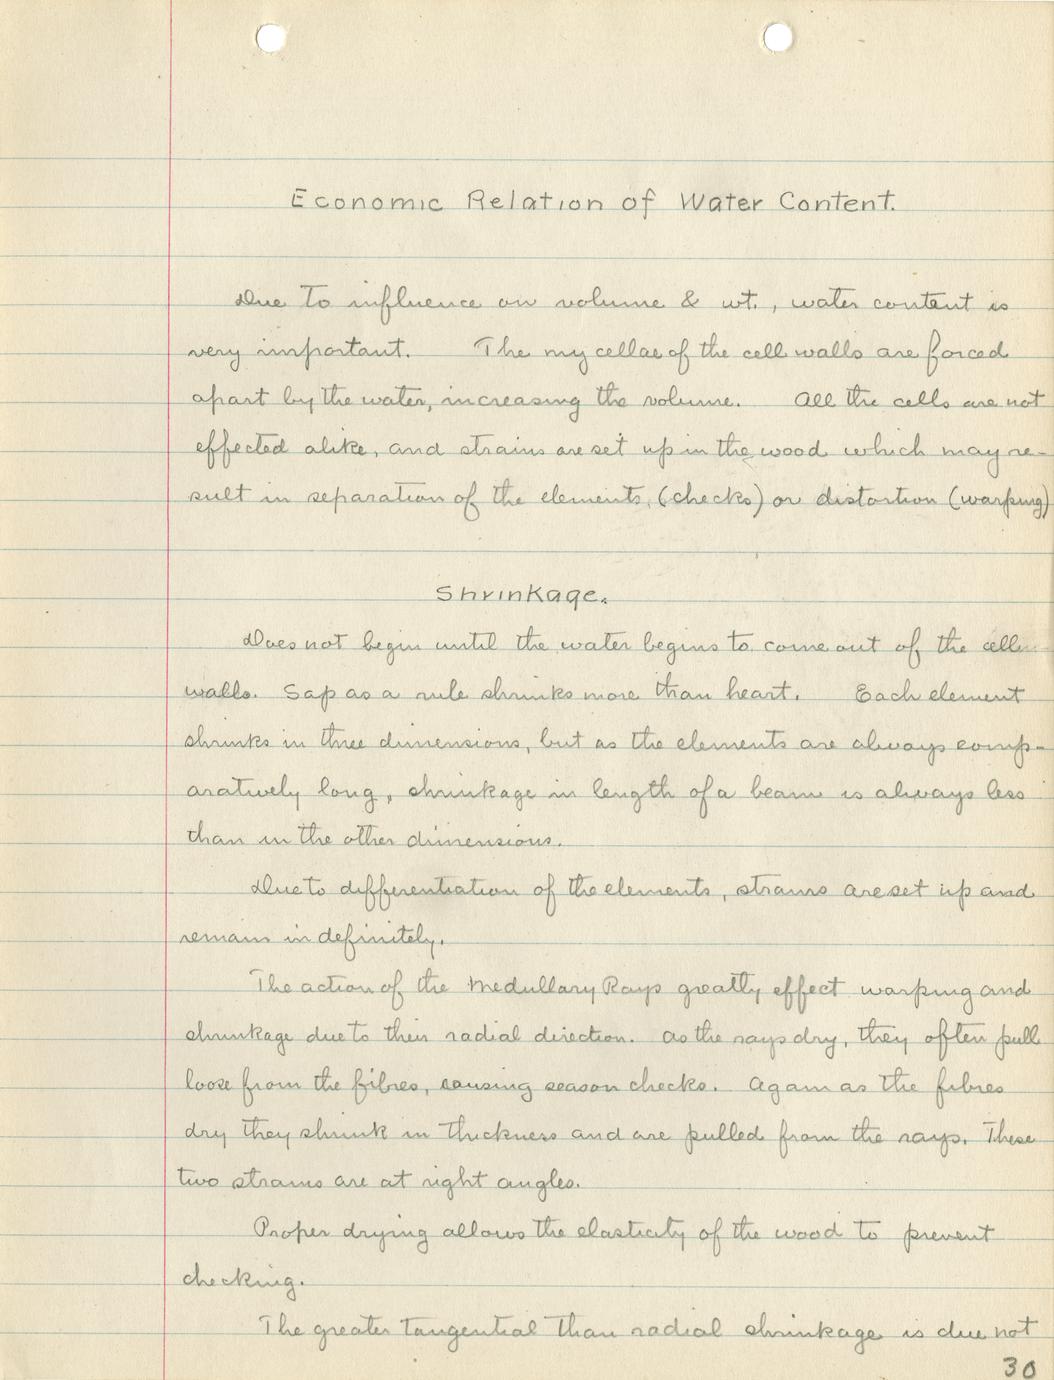 Economic Relation of Water Content.
Due to influence on volume & wt., water content is
very important. The mycellae of the cell walls are forced
apart by the water, increasing the volume. All the cells are not
effected alike, and strains are set up in the wood which may re-
sult in separation of the elements, (checks) or distortion (warping)
Shrinkage.
Does not begin until the water begins to come out of the cell
walls. Sap as a rule shrinks more than heart. Each element
shrinks in three dimensions, but as the elements are always comp-
aratively long, shrinkage in length of a beam is always less
than in the other dimensions.
Due to differentiation of the elements, strains are set up and
remain indefinitely.
The action of the Medullary Rays greatly effect warping and
shrinkage due to their radial direction. As the rays dry, they often pull
loose from the fibres, causing season checks. Again as the fibres
dry they shrink in thickness and are pulled from the rays. These
two strains are at right angles.
Proper drying allows the elasticity of the wood to prevent
checking.
The greater tangential than radial shrinkage is due not
30